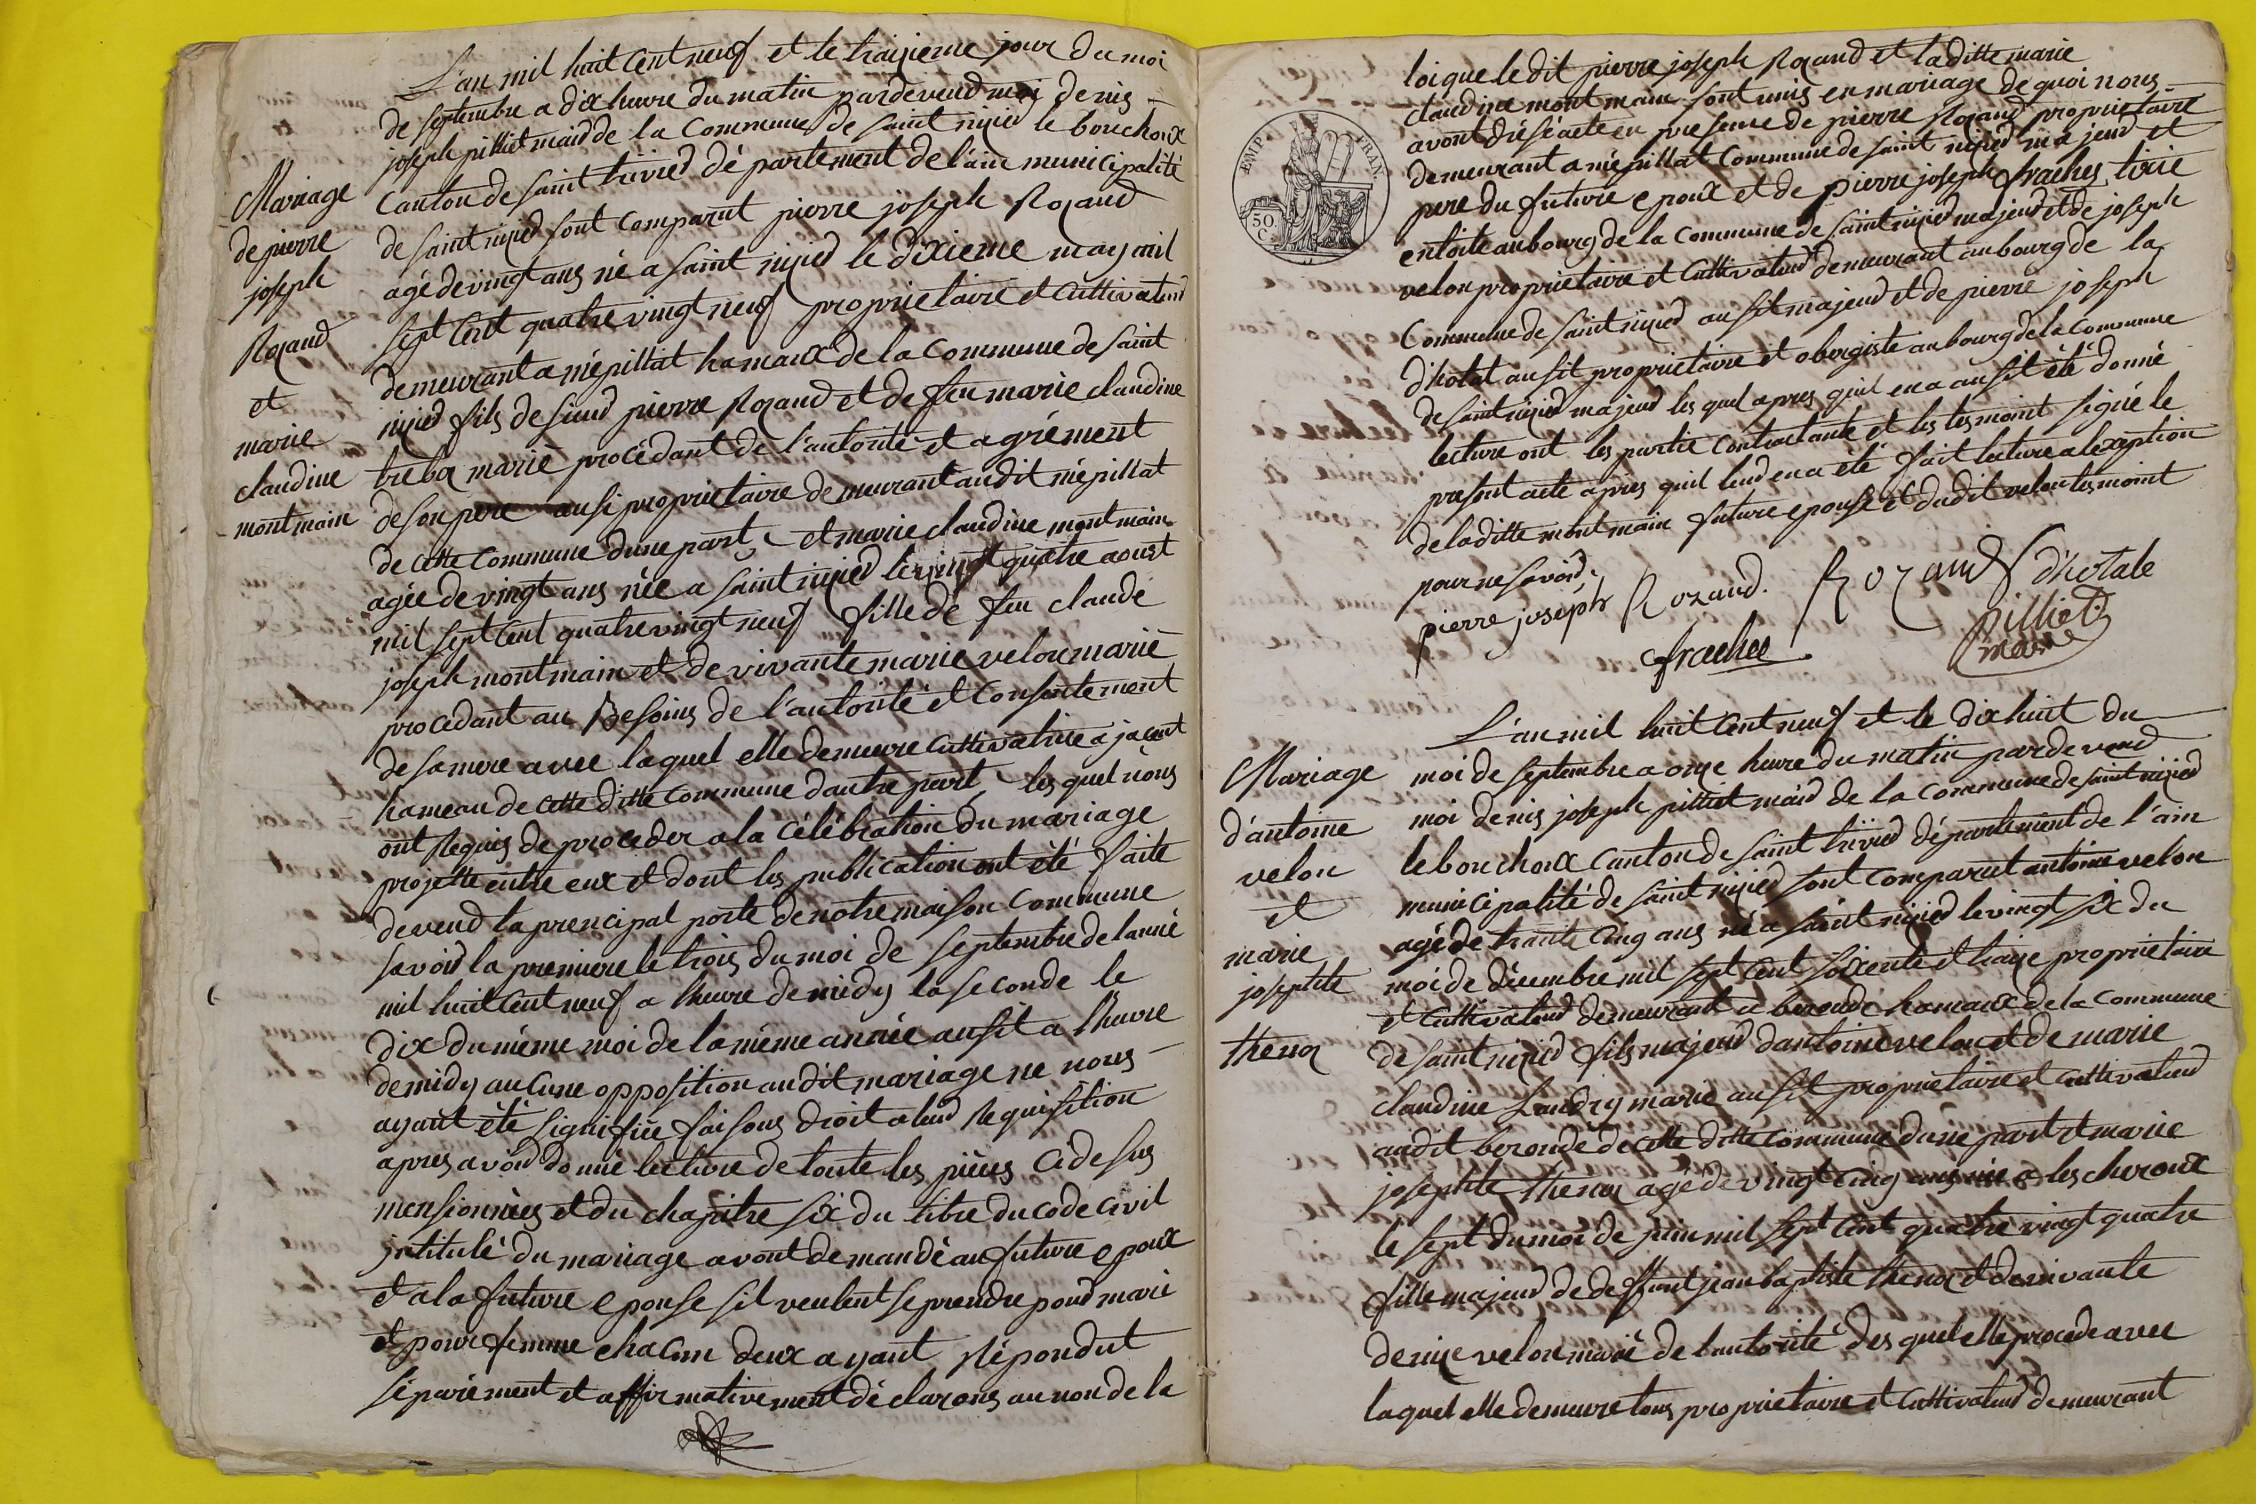 L'an mil huit Cent neuf et le traizieme jour du moi
de septembre a dix heure du matin pardeveud moi denis
joseph pilliet maid de la Commune de saint nizied le bouchoux
Canton de saint trivied département de l'ain municipalité
de saint nizied sont Comparut pierre joseph Rozand
agé de vingt ans né a saint nizied le dixieme may mil
sept Cent quatre vingt neuf proprietaire et Cultivateud
demeurant a mépillat hamaux de la Commune de saint
nizied fils de sieud pierre Rozand et de feu marie claudine
marié procédant de l'autorité et agrément
de son pere ausi proprietaire demeurant audit mépillat
de cette Commune dune part, et marie claudine montmain
agée de vingt ans née a saint nizied le vingt quatre aoust
mil sept Cent quatre vingt neuf fille de feu claude
joseph montmain et de vivante marie velon marié
procedant au Besoins de l'autorité et Consentement
de sa mere avec laquel elle demeure Cultivatrice a jacent
hameau de cette ditte Commune dautre part, les quel nous
ont Requis de proceder a la célébration du mariage
projetté entre eux et dont les publication ont été faite
deveud la prencipal porte de notre maison Commune
savoid la premiere le trois du moi de septembre de lanné
mil huit Cent neuf a lheure de midy la seconde le
dix du même moi de la même année ausit a l'heure
de midy auCune opposition audit mariage ne nous
ayant été signifiée faisons droit a leud Requisition
apres avoid donné lecture de toute les pièces Cidesus
mensionnées et du chapitre six du titre du code Civil
intitulé du mariage avont demandé au future epoux
et a la future epouse sil veulent se prendre poud marie
et pour femme chaCun deux ayant Répondut
séparément et affirmativement déclarons au non de la
Mariage
de pierre
joseph
Rozand
et
marie
claudine
montmain
loi que le dit pierre joseph Rozand et la ditte marie
claudine montmain sont unis en mariage de quoi nous
avont drésé acte en presence de pierre Rozand proprietaire
demeurant a mépillat Commune de saint nizied majeud et
pere du future epoux et de pierre joseph frachet tixie
en toite au bourg de la Commune de saint nizied majeud et de joseph
velon proprietaire et Cultivateud demeurant au bourg de la
Commune de saint nizied ausit majeud et de pierre joseph
d'hotal ausit proprietaire et obergiste au bourg de la Commune
de saint nizied majeud les quel apres quil en a ausit été donné
lecture ont les partie Contractante et les tesmoint signé le
present acte apres quil leud en a été fait lecture a lexeption
de la ditte montmain future epouse et dudit velon tesmoint
pour ne savoid.
pierre joseph Rozand. Rozand d'hotale
frachet pilliet
maire
EMP. FRAN.
50
C.
L'an mil huit Cent neuf et le dix huit du
moi de septembre a onze heure du matin pardeveud
moi denis joseph pilliet maid de la Commune de saint nizied
le bouchoux Canton de saint trivied département de l'ain
municipalité de saint nizied sont Comparut antoine velon
agé de trante Cinq ans né a saint nizied le vingt six du
moi de décembre mil sept Cent soixente et traize proprietaire
et Cultivateud demeurant a beronde hamaux de la Commune
de saint nizied fils majeud dantoine velon et de marie
claudine Landry marié ausit proprietaire et Cultivateud
audit beronde de cette ditte Commune dune part et marie
josephte thenoz agé de vingt Cinq ans née a lescheroux
le sept du moi de juin mil sept Cent quatre vingt quatre
fille majeud de deffunt jean baptiste thenoz et de vivante
denize velon marié de l'autorité des quel elle procede avec
laquel elle demeure tous proprietaire et Cultivateud demeurant
Mariage
d'antoine
velon
et
marie
josephte
thenoz